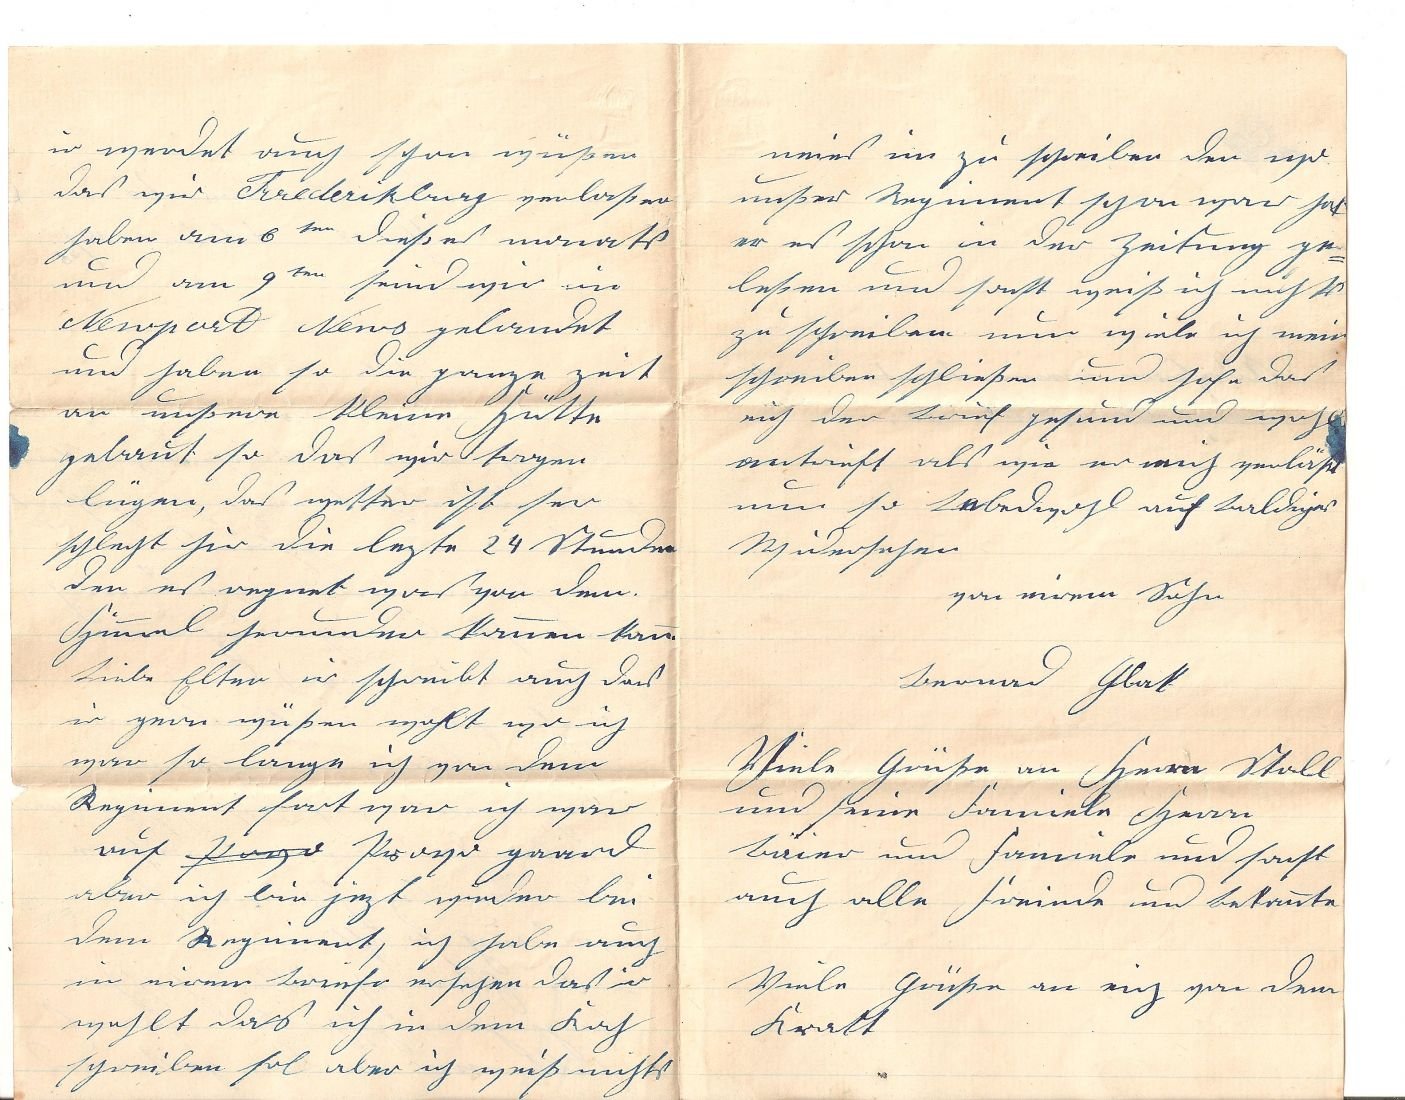 ir werdet auch schon wüßen
das wir Frederikburg verlaßen
haben am 6ten dießes monats
und am 9ten seind wir in
Newport News gelandet
und haben so die ganze zeit
an unßere kleine Hütte
gebaut so das wir
das wetter ist ser
schlecht hir die lezte 24 Stunden
den es regnet was von dem
Himel herunder komen kan
Liebe Elter ir schreibt auch das
ir gern wüßen wohlt wo ich
war so lange ich von dem
Regiment fort war ich war
auf Provo gaard
aber ich bin jezt wieder bei
dem Regiment, ich habe auch
in eirem briefe ersehen das ir
wohlt das ich in dem Koch
schreiben sol aber ich weiß nichts
neies im zu schreiben den wo
unßer Regiment schon war hat
er es schon in der Zeitung ge=
leßen und sonst weiß ich nichts
zu schreiben nun wiele ich mein
schreiben schließen und hofe das
eich der brief gesund und wohl
antrieft als wie er mich verläßt
nun so Lebedwohl auf baldiges
Widersehen
von eirem Sohn
Bernad Glak
Viele Grüße an Herrn Stoll
und seine Famiele Herrn
Baier und Famiele und sonst
auch alle Freinde und bekante
Viele Grüße an eich von dem
Kratt